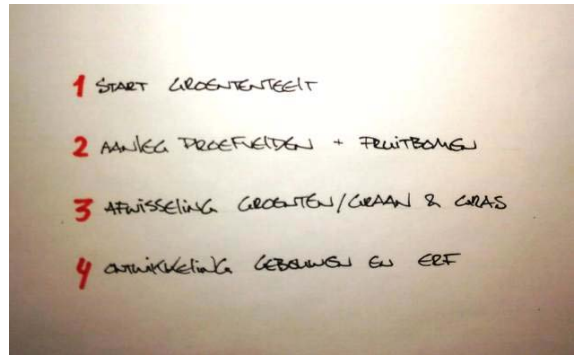 1 START GROENTENTEELT
2 AANLEG PROEFVELDEN + FRUITBOMEN
3 AFWISSELING GROENTEN/GRAAN & GRAS
4 ONTWIKKELING GEBOUWEN EN ERF